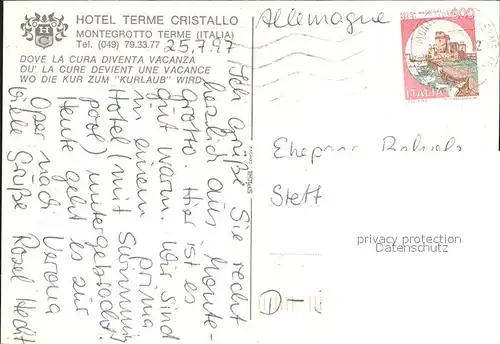 HOTEL TERME CRISTALLO
MONTEGROTTO TERME (ITALIA)
Tel. (049) 79.33.77
DOVE LA CURA DIVENTA VACANZA
OU' LA CURE DEVIENT UNE VACANCE
WO DIE KUR ZUM "KURLAUB" WIRD
25.7.97
Ich grüße Sie recht
herzlich aus Monte-
grotto. Hier ist es
gut warm. Wir sind
in einem prima
Hotel (mit Swimming
pool) untergebracht.
Heute geht es zur
Oper nach Verona
Viele Grüße Rosel Hecht
Allemagne
ITALIA
Ehepaar
Stett
privacy protection
Datenschutz
D-